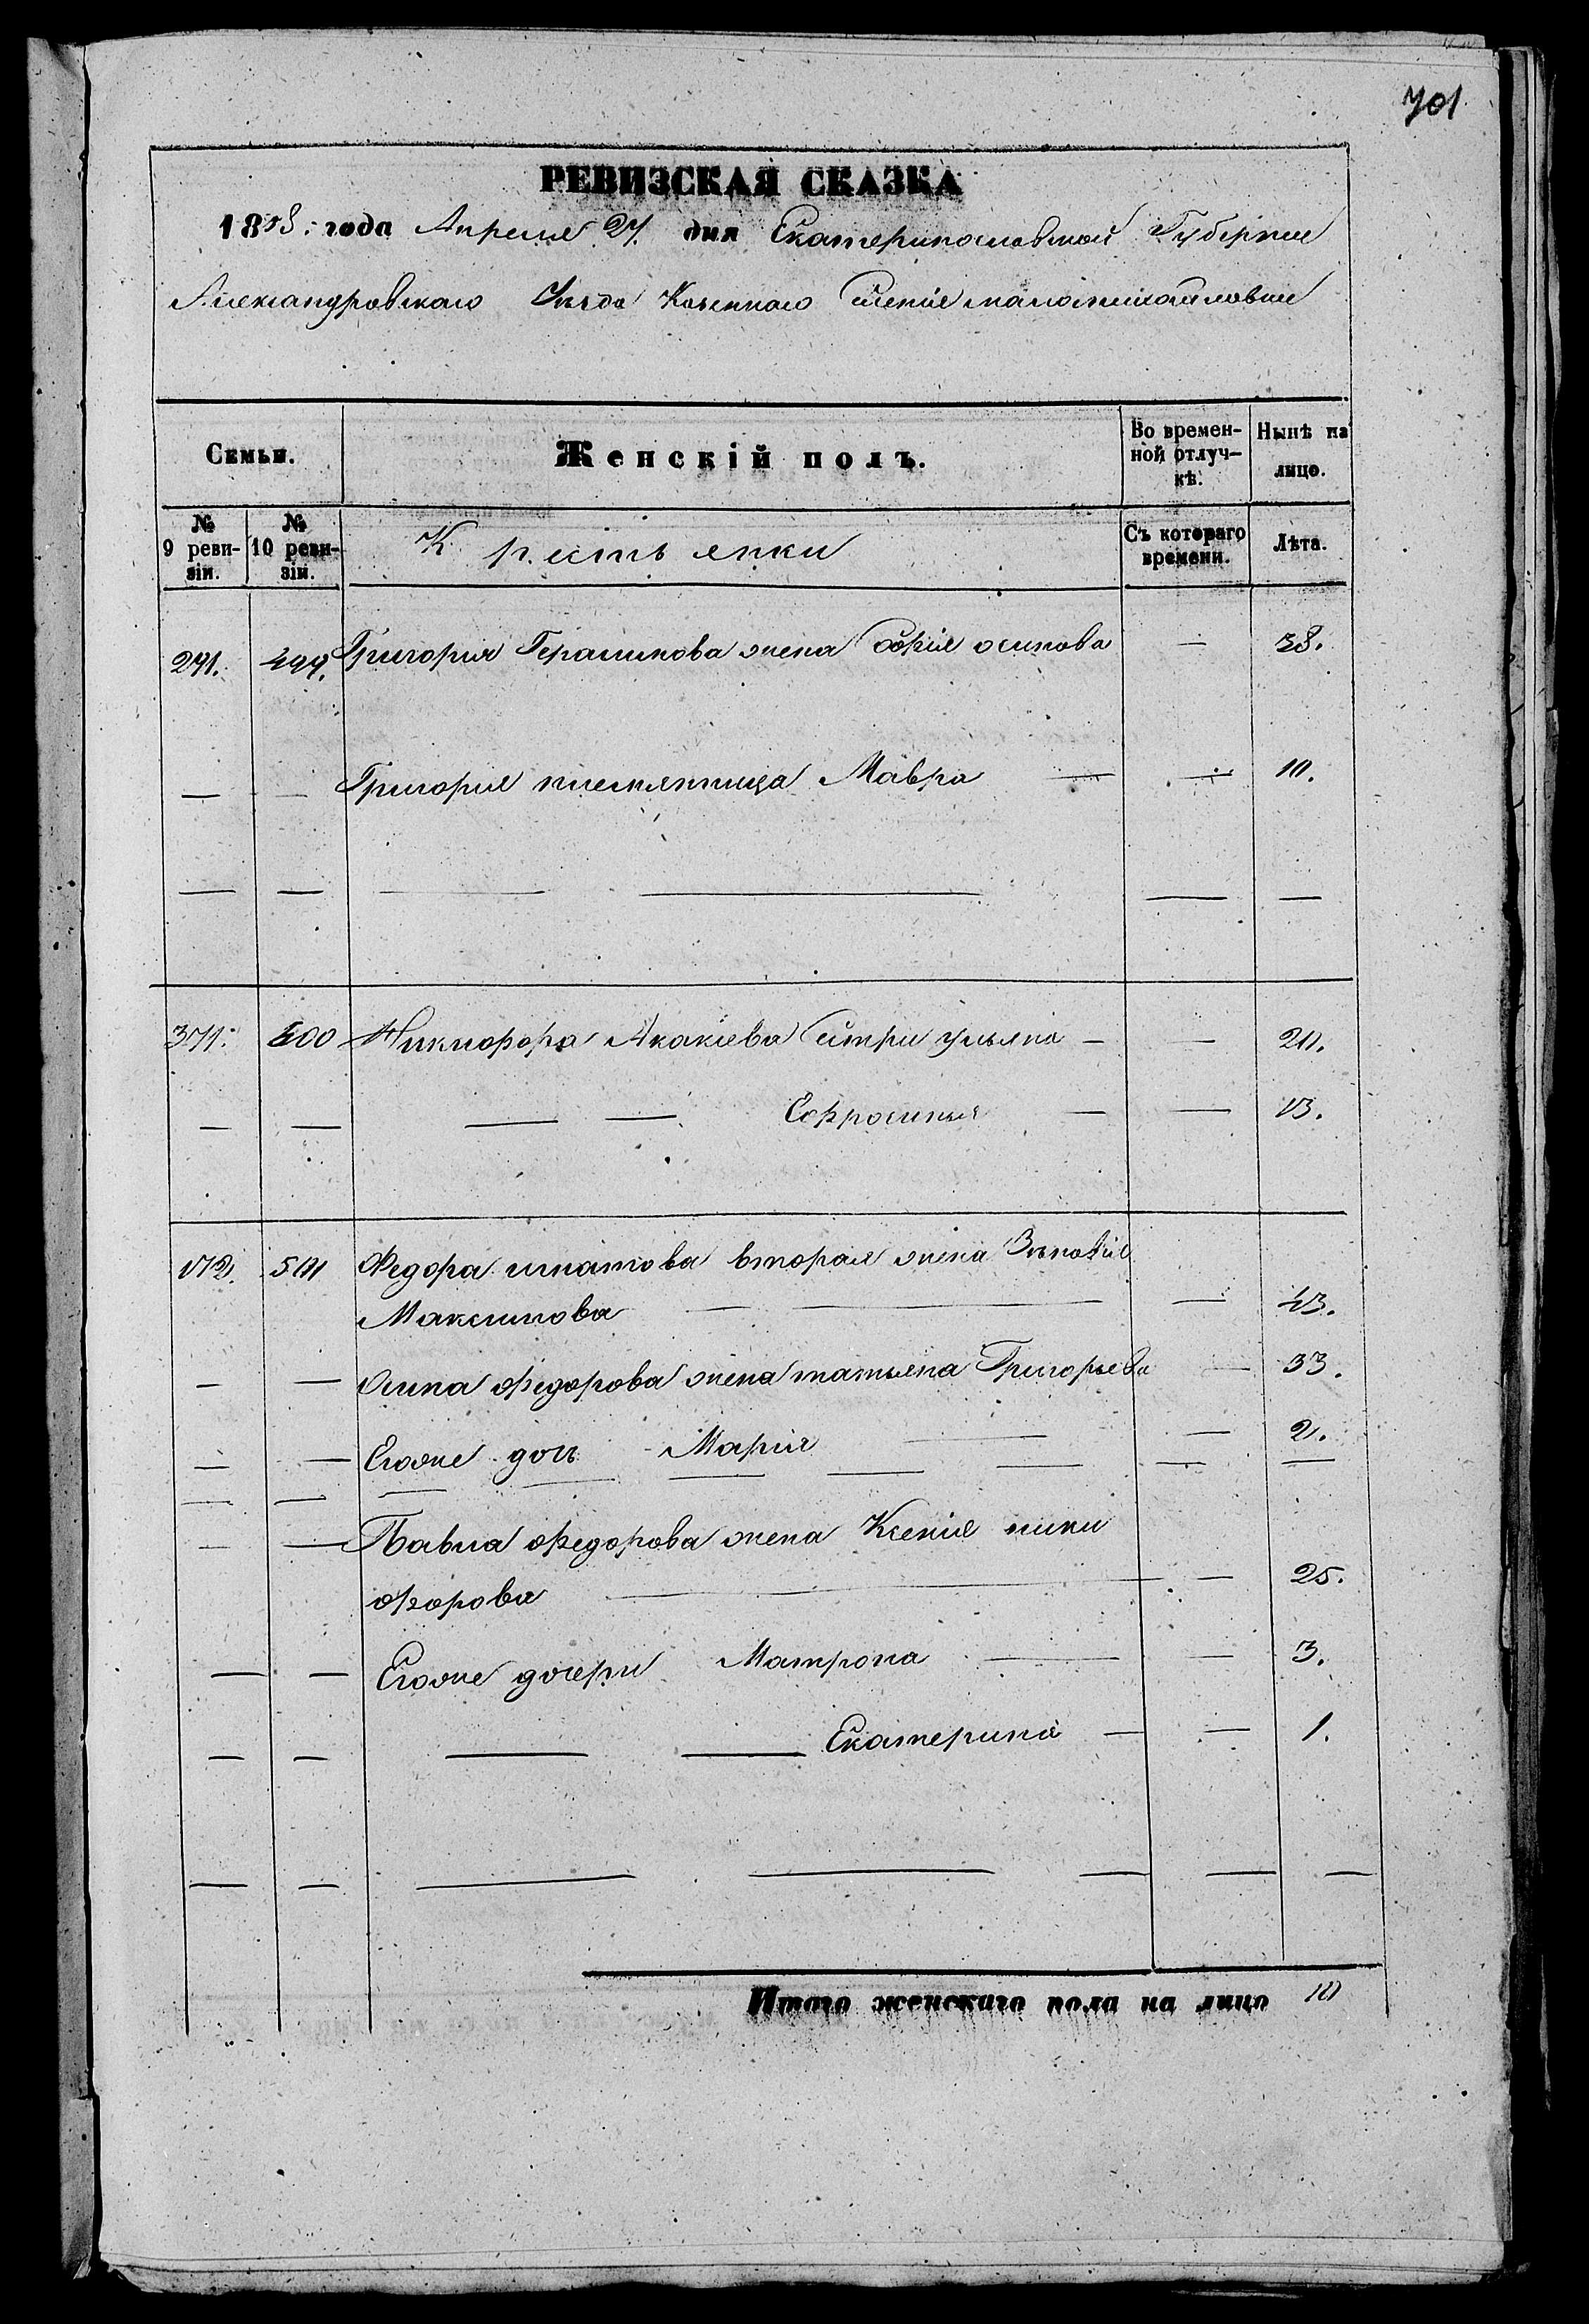 701
РЕВИЗСКАЯ СКАЗКА
1858. года Апреля 27. дня Екатеринославской Губернии
Александровского Уѣзда Казенного Селения маломихайловки
Семьи. Женскій полъ. Во времен-ной отлуч-кѣ. Нынѣ на лицо.
№ 9 реви-зіи. № 10 реви-зіи. К рестьянки Съ котораго времени. Лѣта.
291. 499. Григория Герасимова жена Софія осипова — 38.
— — Григория племянница Мавра — — 10.
371. 500 Никифора Акакіева Сестри ульяна — — 20.
— — — — Ефросинья — — 13.
172. 501 Федора игнатова вторая жена Зѣновія
Максимова — — — 43.
— — осипа федорова жена татьяна Григорьева — 33.
— — Егоже дочь Марія — — 2.
— — Павла федорова жена Ксенія ники
форова — — 25.
— — Егоже дочери Матрона — — 3.
— — — — Екатерина — — 1.
Итого женскаго пола на лицо 10